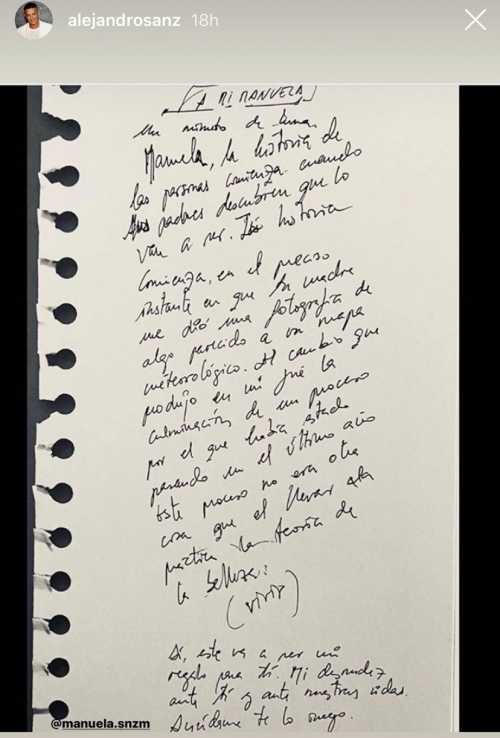 alejandrosanz 18h
A MI MANUELA
Un minuto de luna.
Manuela, la historia de
las personas comienza cuando
sus padres descubren que lo
van a ser. Tu historia
comienza, en el preciso
instante en que tu madre
me dió una fotografía de
algo parecido a un mapa
méteorológico. El cambio que
produjo en mí fué la
culminación de un proceso
por el que había estado
pasando en el último año
Este proceso no era otra
cosa que el llevar a la
práctica la teoría de
la belleza:
(vivir)
Sí, este va a ser mi
regalo para tí. Mi desnudez
ante tí y ante nuestras vidas.
te lo ruego.
@manuela.snzm